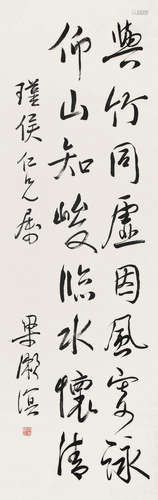 與竹同虛因風寄詠
仰山知峻臨水懷清
瑾侯仁兄屬
梁漱溟